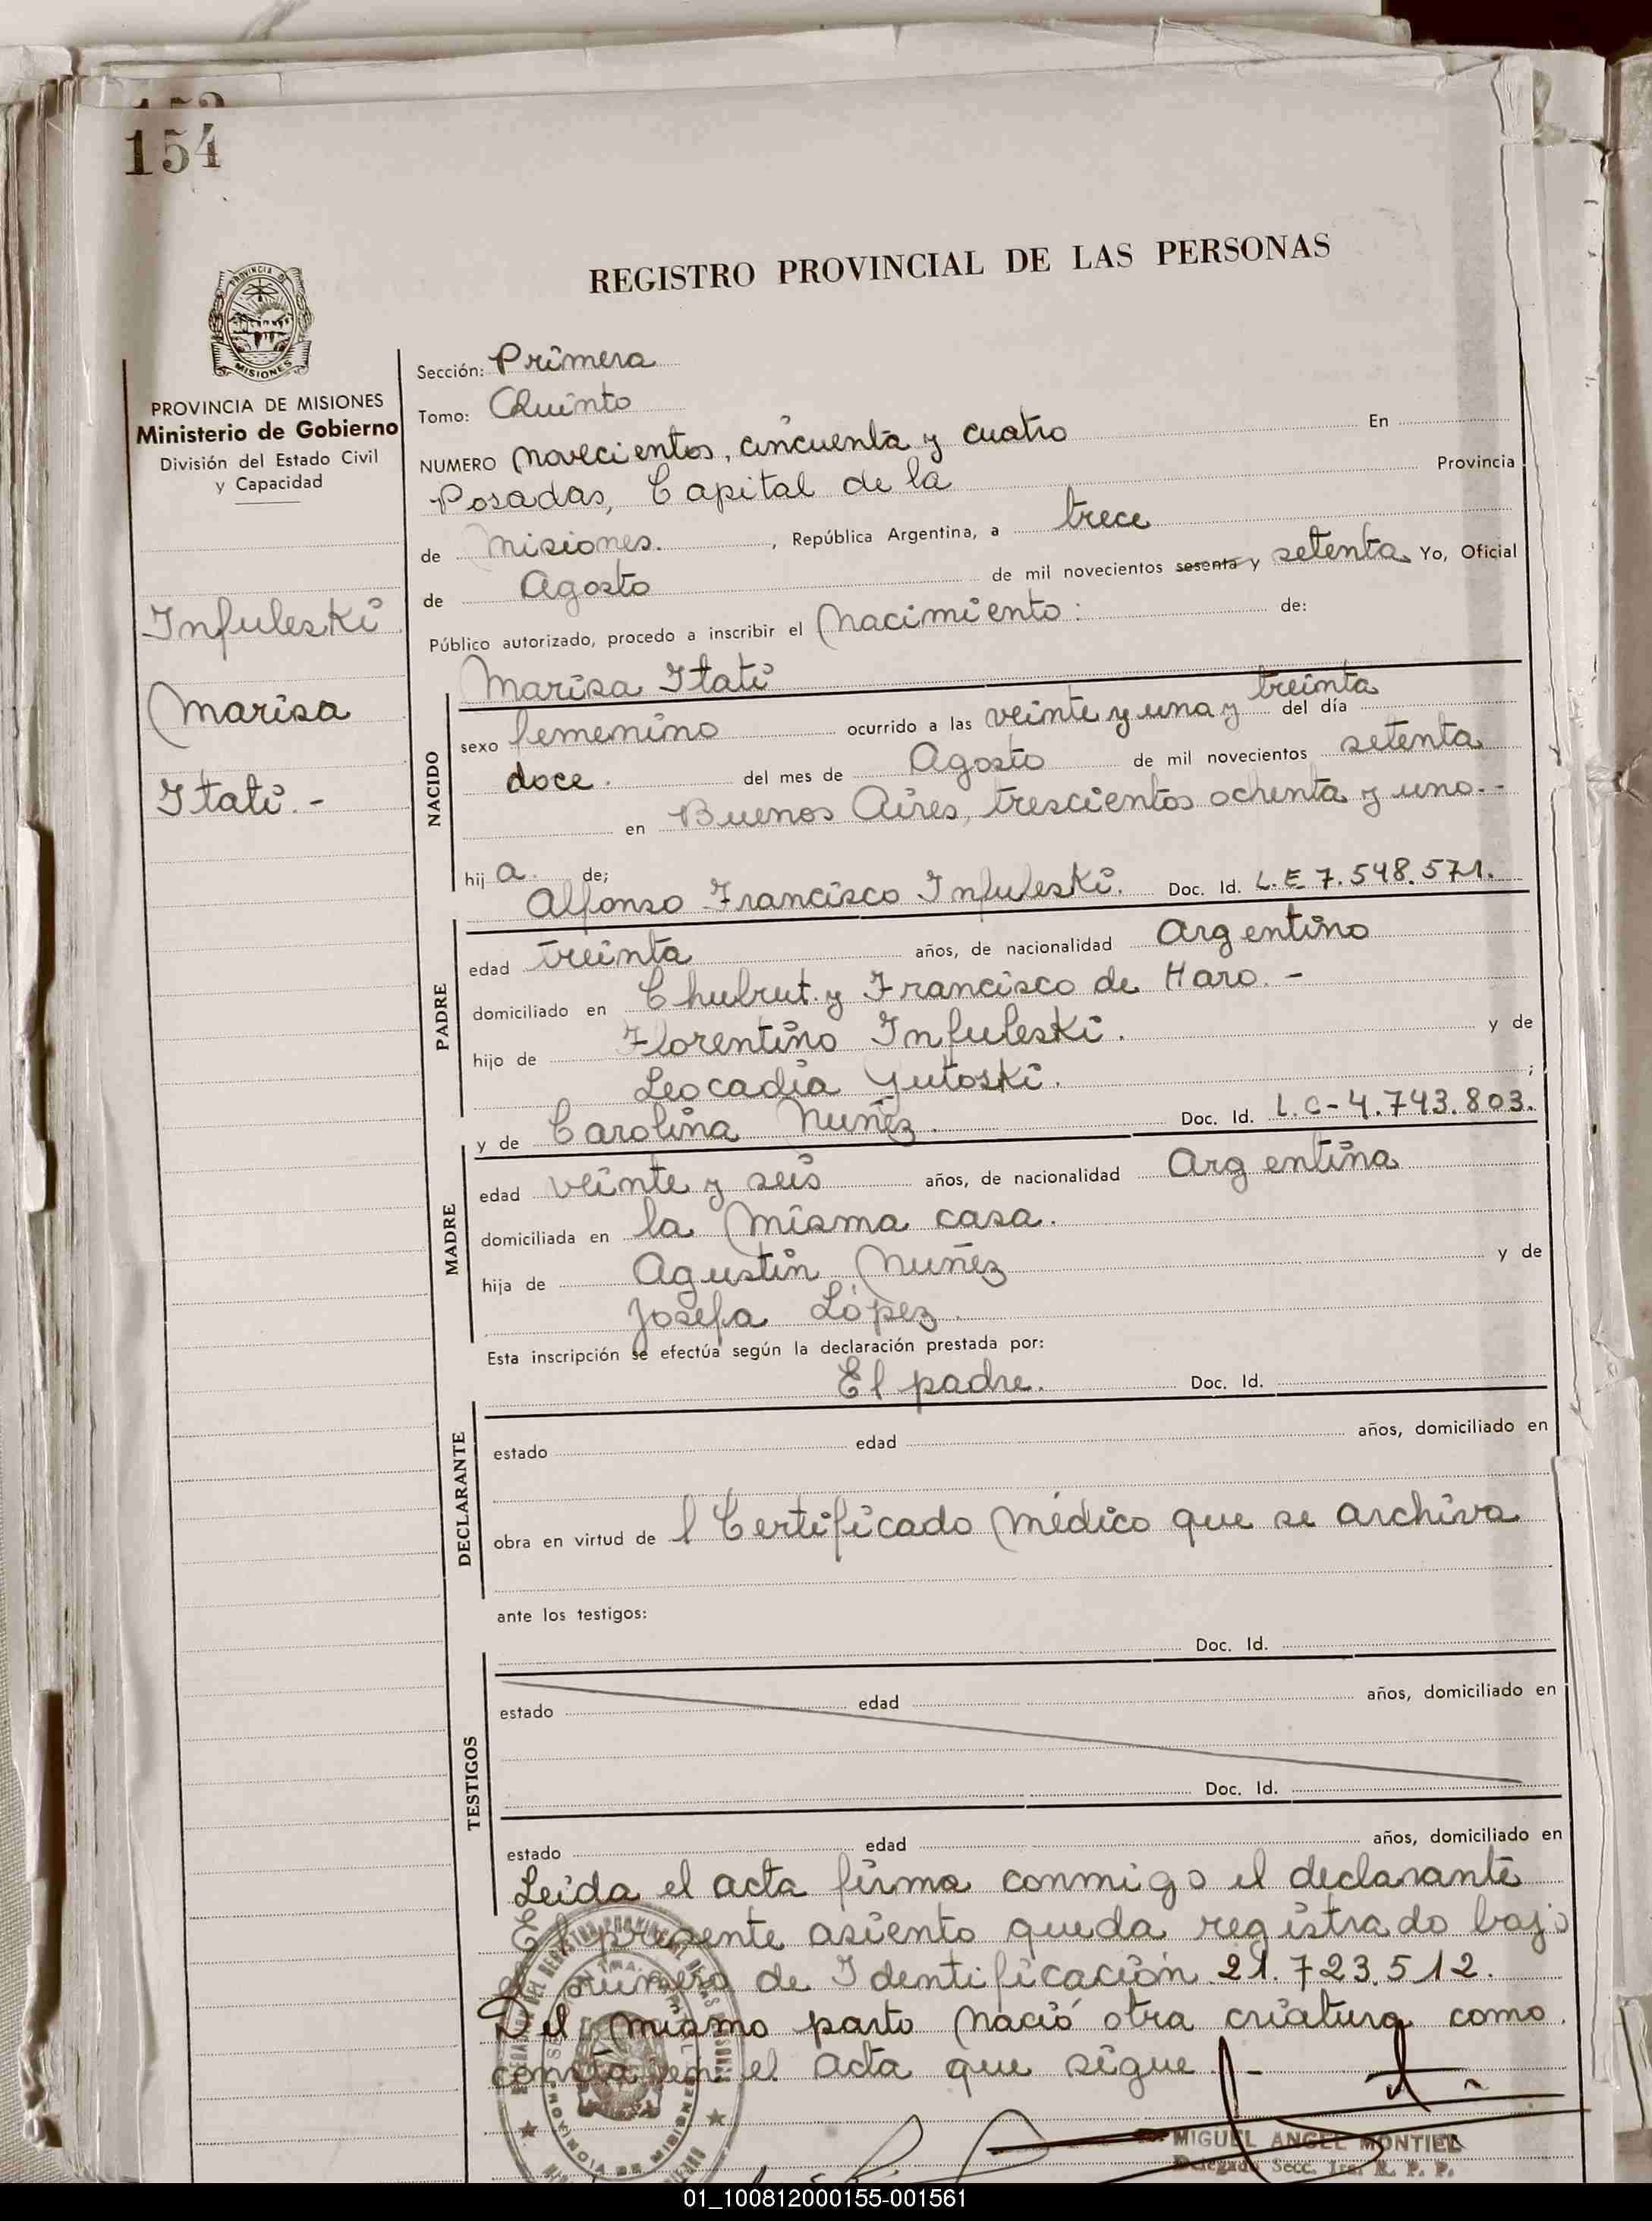 154
REGISTRO PROVINCIAL DE LAS PERSONAS
PROVINCIA DE MISIONES
Ministerio de Gobierno
División del Estado Civil
y Capacidad
Infuleski
Marisa
Itatí.-
Sección: Primera
Tomo: Quinto
NUMERO novecientos, cincuenta y cuatro En
Posadas, Capital de la Provincia
de Misiones. , República Argentina, a trece
de Agosto de mil novecientos sesenta y setenta Yo, Oficial
Público autorizado, procedo a inscribir el Nacimiento: de:
Marisa Itatí
NACIDO
sexo femenino ocurrido a las veinte y una y treinta del día
doce. del mes de Agosto de mil novecientos setenta
en Buenos Aires, trescientos ochenta y uno.-
hij a. de;
Alfonso Francisco Infuleski. Doc. Id. L.E 7.548.571.
PADRE
edad treinta años, de nacionalidad Argentino
domiciliado en Chubut y Francisco de Haro.-
hijo de Florentino Infuleski. y de
Leocadia Yutoski. ;
y de Carolina Nuñez. Doc. Id. L.C-4.743.803.
MADRE
edad veinte y seis años, de nacionalidad Argentina
domiciliada en la misma casa.
hija de Agustin Nuñez y de
Josefa López.
Esta inscripción se efectúa según la declaración prestada por:
El padre. Doc. Id.
DECLARANTE
estado edad años, domiciliado en
obra en virtud de l Certificado médico que se archiva
ante los testigos:
Doc. Id.
TESTIGOS
estado edad años, domiciliado en
Doc. Id.
estado edad años, domiciliado en
Leida el acta firma conmigo el declarante
El presente asiento queda registrado bajo
el número de Identificación 21.723.512.
Del mismo parto nació otra criatura como
consta en el acta que sigue.-
MIGUEL ANGEL MONTIEL
Delegado Secc. 1ra. R. P. P.
01_100812000155-001561